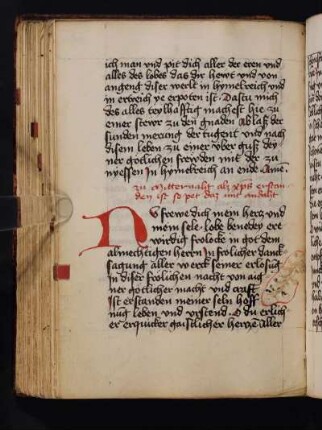 ich man und pit dich aller der eren und
alles des lobes das dir hewt und von
angeng diser werlt in hymelreich und
in ertreich ye erpoten ist. Dastu mich
des alles teylhafftig machest hie zu
einer stewr zu den gnaden ablas der
sunden merung der tugent und nach
disem leben zu einer uber guß dey
ner götlichen frewden mit der zu
nyessen In hymelreich an ende Amen.
zu Mitternacht als xps erstan
den ist so pet daz mit andacht
NU frewe dich mein hertz und
mein sele. lobe benedey ere
wirdig frolock in got dem
almechtigen herrn In frölicher danck
sagung aller werck seiner erlosug
In diser frölichen nacht von aig
ner götlicher macht und craft
Ist erstanden meiner seln hoff
nug leben und urstend. O du erlich
er erquicker gaistlicher hertze Aller